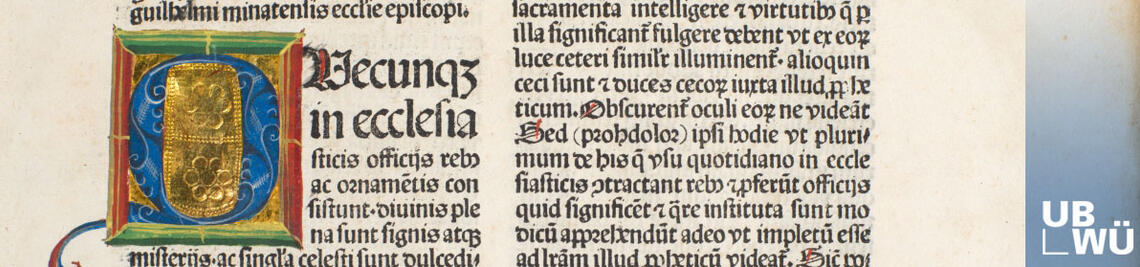 guilhelmi minatensis ecclie episcopi.
Uecunqꝫ
in ecclesia
sticis officijs rebꝰ
ac ornamētis con
sistunt·diuinis ple
na sunt signis atqꝫ
misterijs·ac singła celesti sunt dulcedi⸗
sacramenta intelligere ⁊ virtutibꝰ q̄ ꝑ
illa significant̄ fulgere debent vt ex eoꝝ
luce ceteri similr̄ illuminent̄· alioquin
ceci sunt ⁊ duces cecoꝝ iuxta illud ꝓphe
ticum. Obscurent̄ oculi eoꝝ ne videāt
Sed (prohdolor) ipsi hodie vt pluri⸗
mum de his q̄ vsu quotidiano in eccle
siasticis ꝯtractant rebꝰ ⁊ ꝓferūt officijs
quid significēt ⁊ q̄re instituta sunt mo
dicū apprehendūt adeo vt impletū esse
ad lr̄am illud ꝓpheticū videat̄. Sic
UB
WÜ